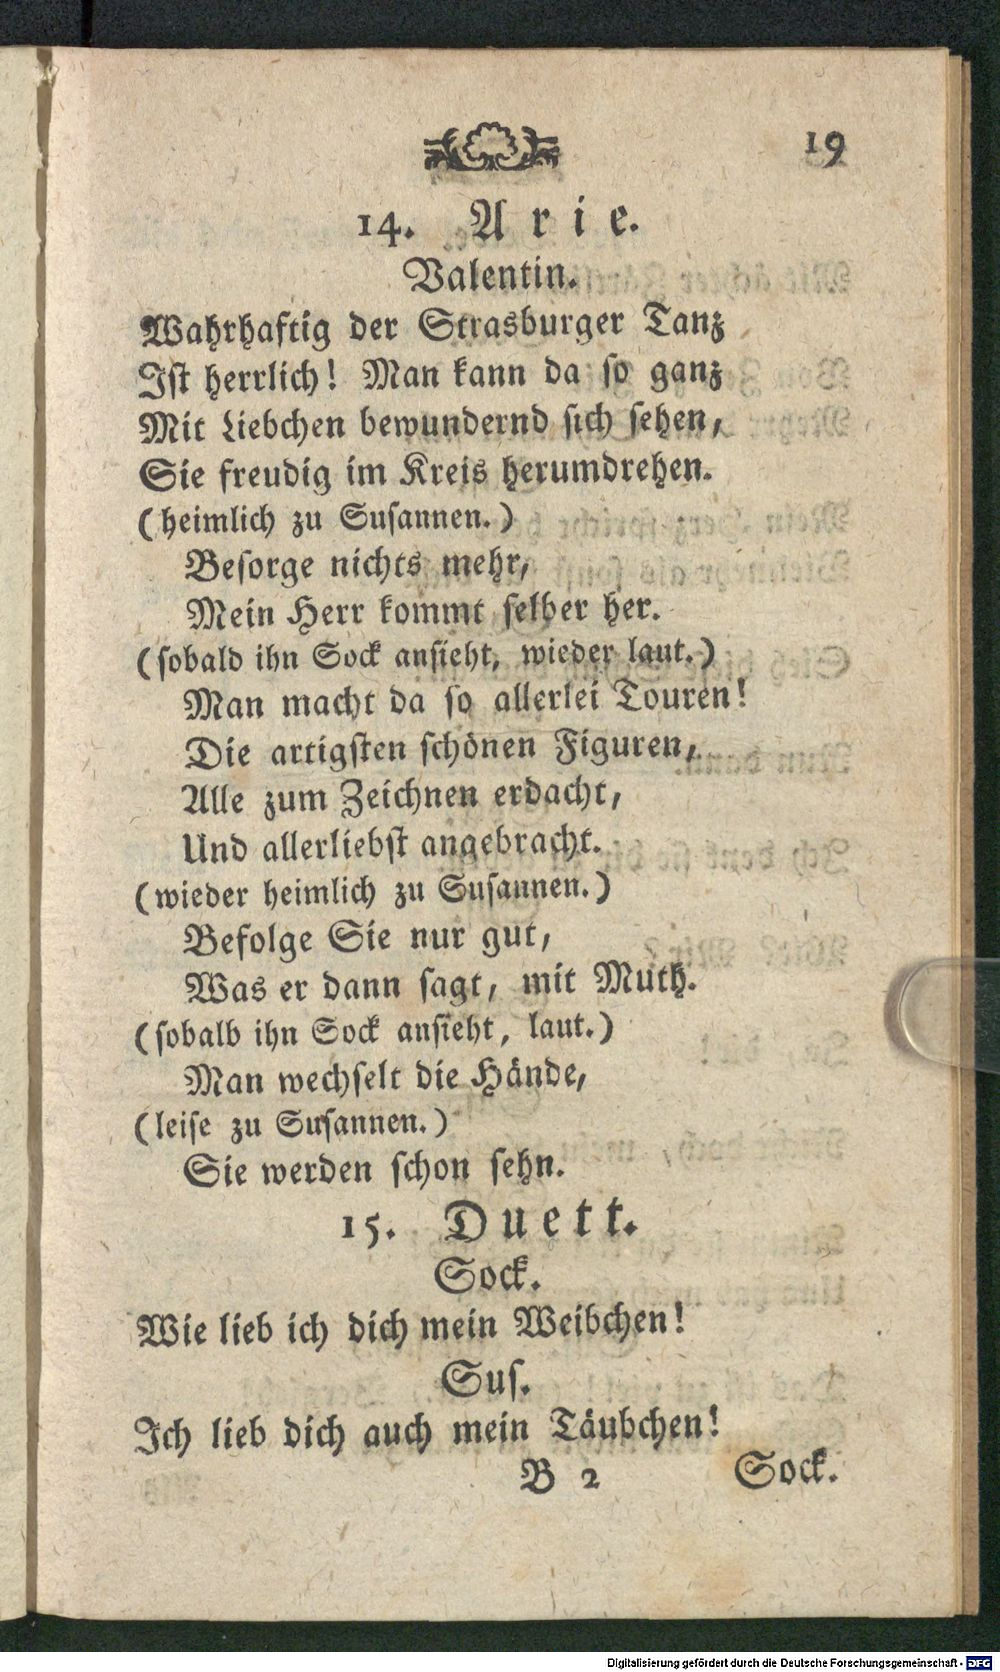 19
14. Arie.
Valentin.
Wahrhaftig der Strasburger Tanz
Ist herrlich! Man kann da so ganz
Mit Liebchen bewundernd sich sehen,
Sie freudig im Kreis herumdrehen.
(heimlich zu Susannen.)
Besorge nichts mehr,
Mein Herr kommt selber her.
(sobald ihn Sock ansieht, wieder laut.)
Man macht da so allerlei Touren!
Die artigsten schönen Figuren,
Alle zum Zeichnen erdacht,
Und allerliebst angebracht.
(wieder heimlich zu Susannen.)
Befolge Sie nur gut,
Was er dann sagt, mit Muth.
(sobalb ihn Sock ansieht, laut.)
Man wechselt die Hände,
(leise zu Susannen.)
Sie werden schon sehn.
15. Duett.
Sock.
Wie lieb ich dich mein Weibchen!
Sus.
Ich lieb dich auch mein Täubchen!
B 2 Sock.
Digitalisierung gefördert durch die Deutsche Forschungsgemeinschaft - DFG